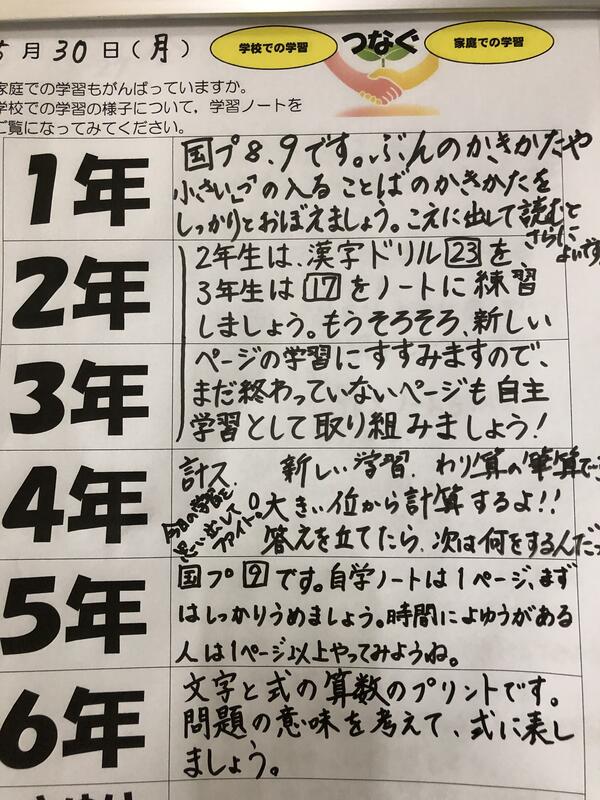 5月30日(月)
学校での学習
つなぐ
家庭での学習
家庭での学習もがんばっていますか。
学校での学習の様子について,学習ノートを
ご覧になってみてください。
1年
国プ8、9です。ぶんのかきかたや
小さい「つ」の入ることばのかきかたを
しっかりとおぼえましょう。こえに出して読むと
さらに
よいです
2年
3年
2年生は、漢字ドリル23を、
3年生は17をノートに練習
しましょう。もうそろそろ、新しい
ページの学習にすすみますので、
まだ終わっていないページも自主
学習として取り組みましょう!
4年
計ス 新しい学習、わり算の筆算で
大きい位から計算するよ!!
答えを立てたら、次は何をするんだっ
今日の学習を
思い出して
ファイト。
5年
国プ9です。自学ノートは1ページ、まず
はしっかりうめましょう。時間によゆうがある
人は1ページ以上やってみようね。
6年
文字と式の算数のプリントです。
問題の意味を考えて、式に表し
ましょう。